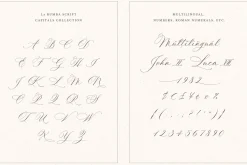 LA BOHEMA SCRIPT
CAPITALS COLLECTION
A B C D
E F G H I
J K L M N
O P Q R S
T U V W
X Y Z
MULTILINGUAL,
NUMBERS, ROMAN NUMERALS, ETC.
Multilingual
John II. Luca VIII
1982
1234567890